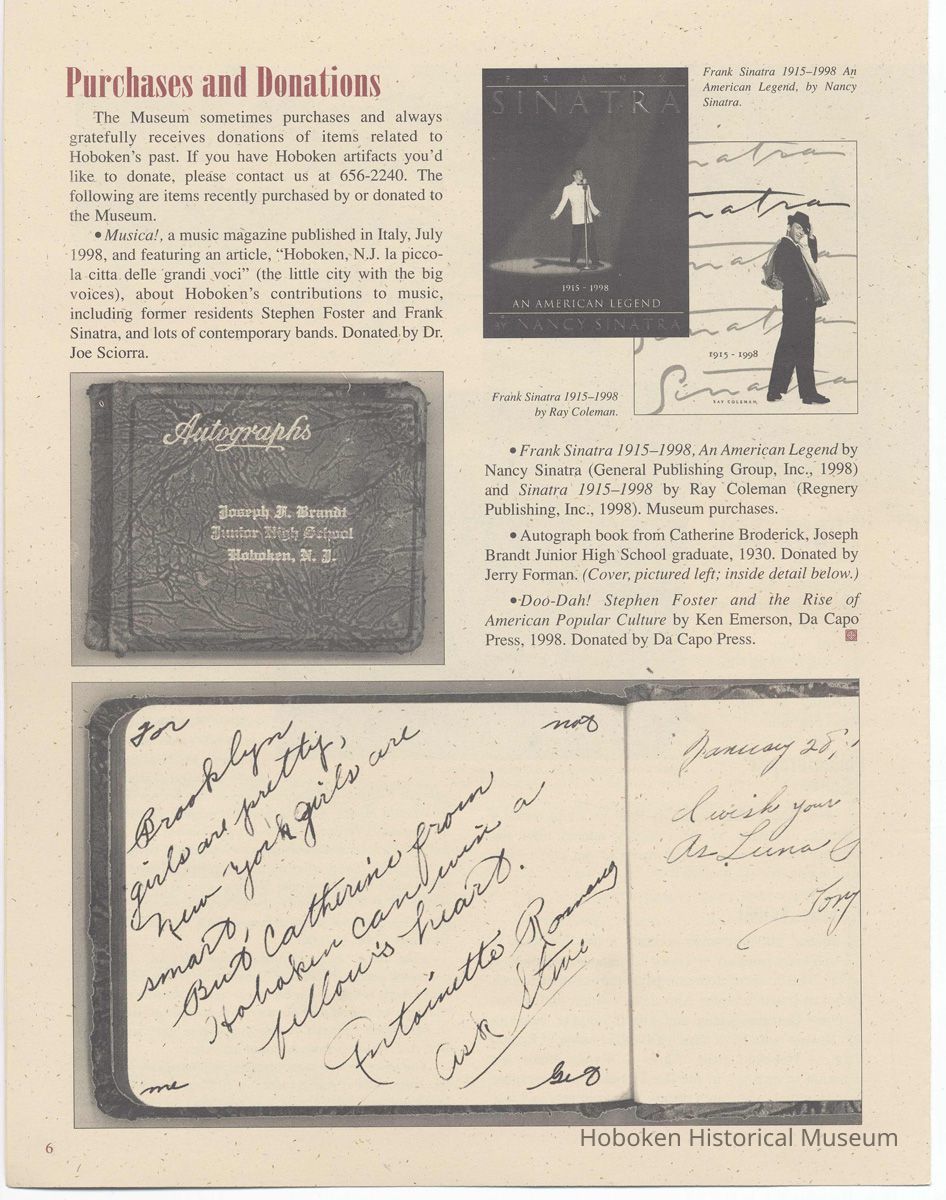 Purchases and Donations
The Museum sometimes purchases and always
gratefully receives donations of items related to
Hoboken's past. If you have Hoboken artifacts you'd
like to donate, please contact us at 656-2240. The
following are items recently purchased by or donated to
the Museum.
• Musica!, a music magazine published in Italy, July
1998, and featuring an article, “Hoboken, N.J. la picco-
la citta delle grandi voci” (the little city with the big
voices), about Hoboken's contributions to music,
including former residents Stephen Foster and Frank
Sinatra, and lots of contemporary bands. Donated by Dr.
Joe Sciorra.
Autographs
Joseph F. Brandt
Junior High School
Hoboken, N. J.
FRANK
SINATRA
1915 - 1998
AN AMERICAN LEGEND
BY NANCY SINATRA
Frank Sinatra 1915–1998 An
American Legend, by Nancy
Sinatra.
Sinatra
1915 - 1998
RAY COLEMAN
Frank Sinatra 1915–1998
by Ray Coleman.
• Frank Sinatra 1915–1998, An American Legend by
Nancy Sinatra (General Publishing Group, Inc., 1998)
and Sinatra 1915–1998 by Ray Coleman (Regnery
Publishing, Inc., 1998). Museum purchases.
• Autograph book from Catherine Broderick, Joseph
Brandt Junior High School graduate, 1930. Donated by
Jerry Forman. (Cover, pictured left; inside detail below.)
• Doo-Dah! Stephen Foster and the Rise of
American Popular Culture by Ken Emerson, Da Capo
Press, 1998. Donated by Da Capo Press.
For
not
Brooklyn
girls are pretty,
New York girls are
smart,
But Catherine from
Hoboken can win a
fellow's heart.
Antoinette
ask Steve
me
Get
January 28,
I wish you
As
Tony
6
Hoboken Historical Museum